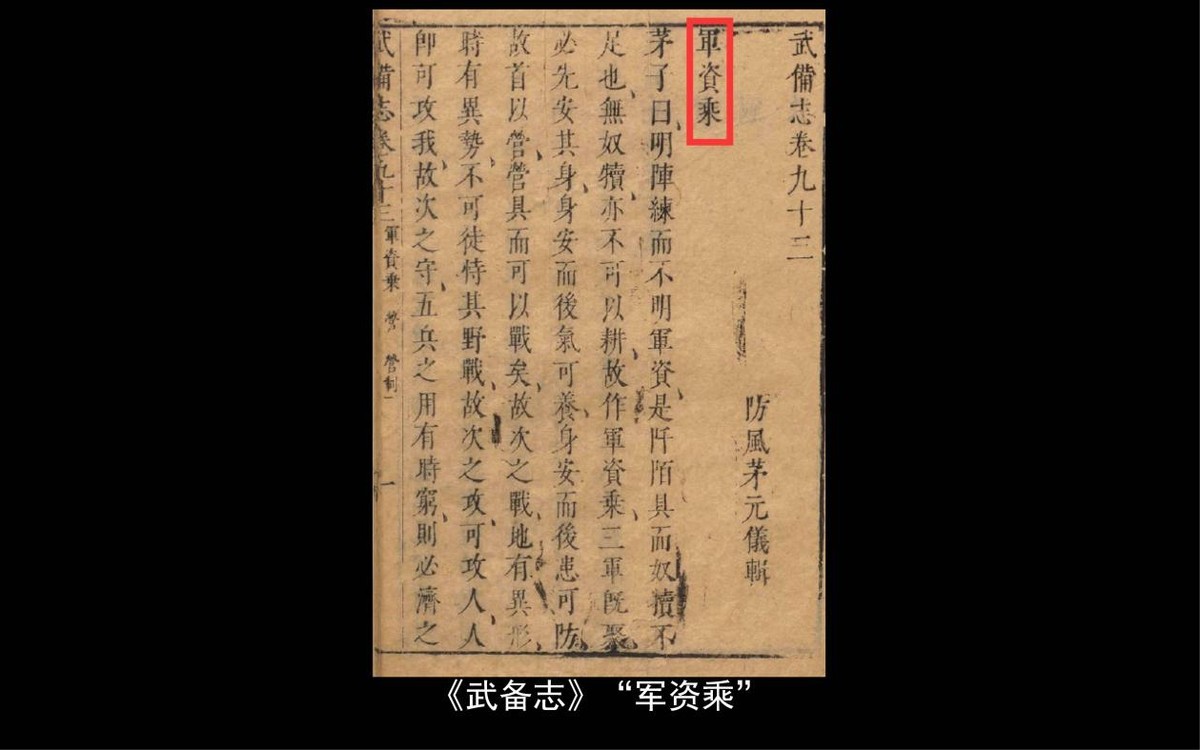 武備志卷九十三
防風茅元儀輯
軍資乘
茅子曰、明陣練而不明軍資、是阡陌具而奴犢不
足也、無奴犢、亦不可以耕、故作軍資乘、三軍既聚、
必先安其身、身安而後氣可養、身安而後患可防、
故首以營、營具而可以戰矣、故次之戰、地有異形、
時有異勢、不可徒恃其野戰、故次之攻、可攻人、人
卽可攻我、故次之守、五兵之用有時窮、則必濟之
武備志卷九十三 軍資乘 營 營制一 一
《武备志》“军资乘”